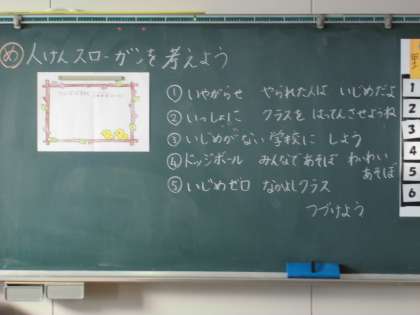 め 人けんスローガンを考えよう
① いやがらせ やられた人は いじめだよ
② いっしょに クラスを はってんさせようね
③ いじめがない 学校に しよう
④ ドッジボール みんなであそぼ わいわい
あそぼ
⑤ いじめゼロ なかよしクラス
つづけよう
1
2
3
4
5
6